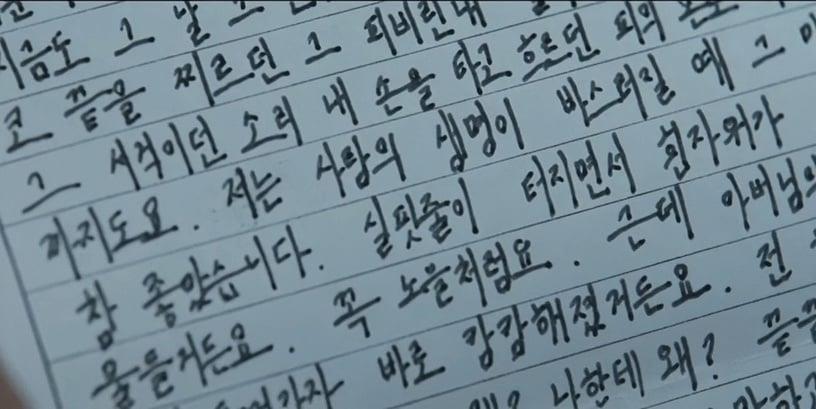 지금도 그 날 그
코 끝을 찌르던 그 피비린내
그 서걱이던 소리 내 손을 타고 흐르던 피의 온도
까지도요. 저는 사람의 생명이 바스러질 때 그
참 좋았습니다. 실핏줄이 터지면서 흰자위가
물들거든요. 꼭 노을처럼요. 근데 아버님의
바로 캄캄해졌거든요. 전
왜? 나한테 왜?